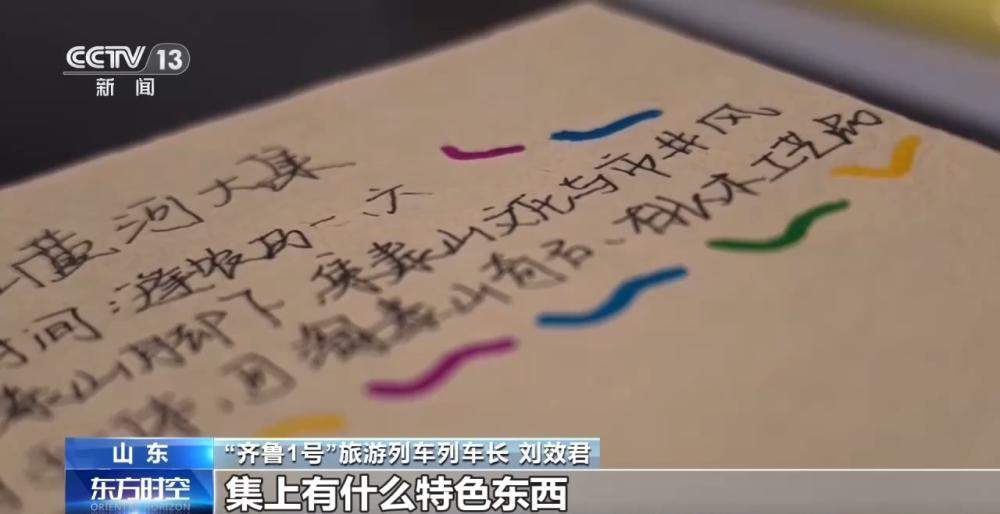 CCTV 13
新闻
黄河大集
时间:逢农历一、六
泰山脚下 集泰山文化与市井风
可淘泰山奇石、桃木工艺品
山东
“齐鲁1号”旅游列车列车长 刘效君
东方时空
ORIENTAL HORIZON
集上有什么特色东西